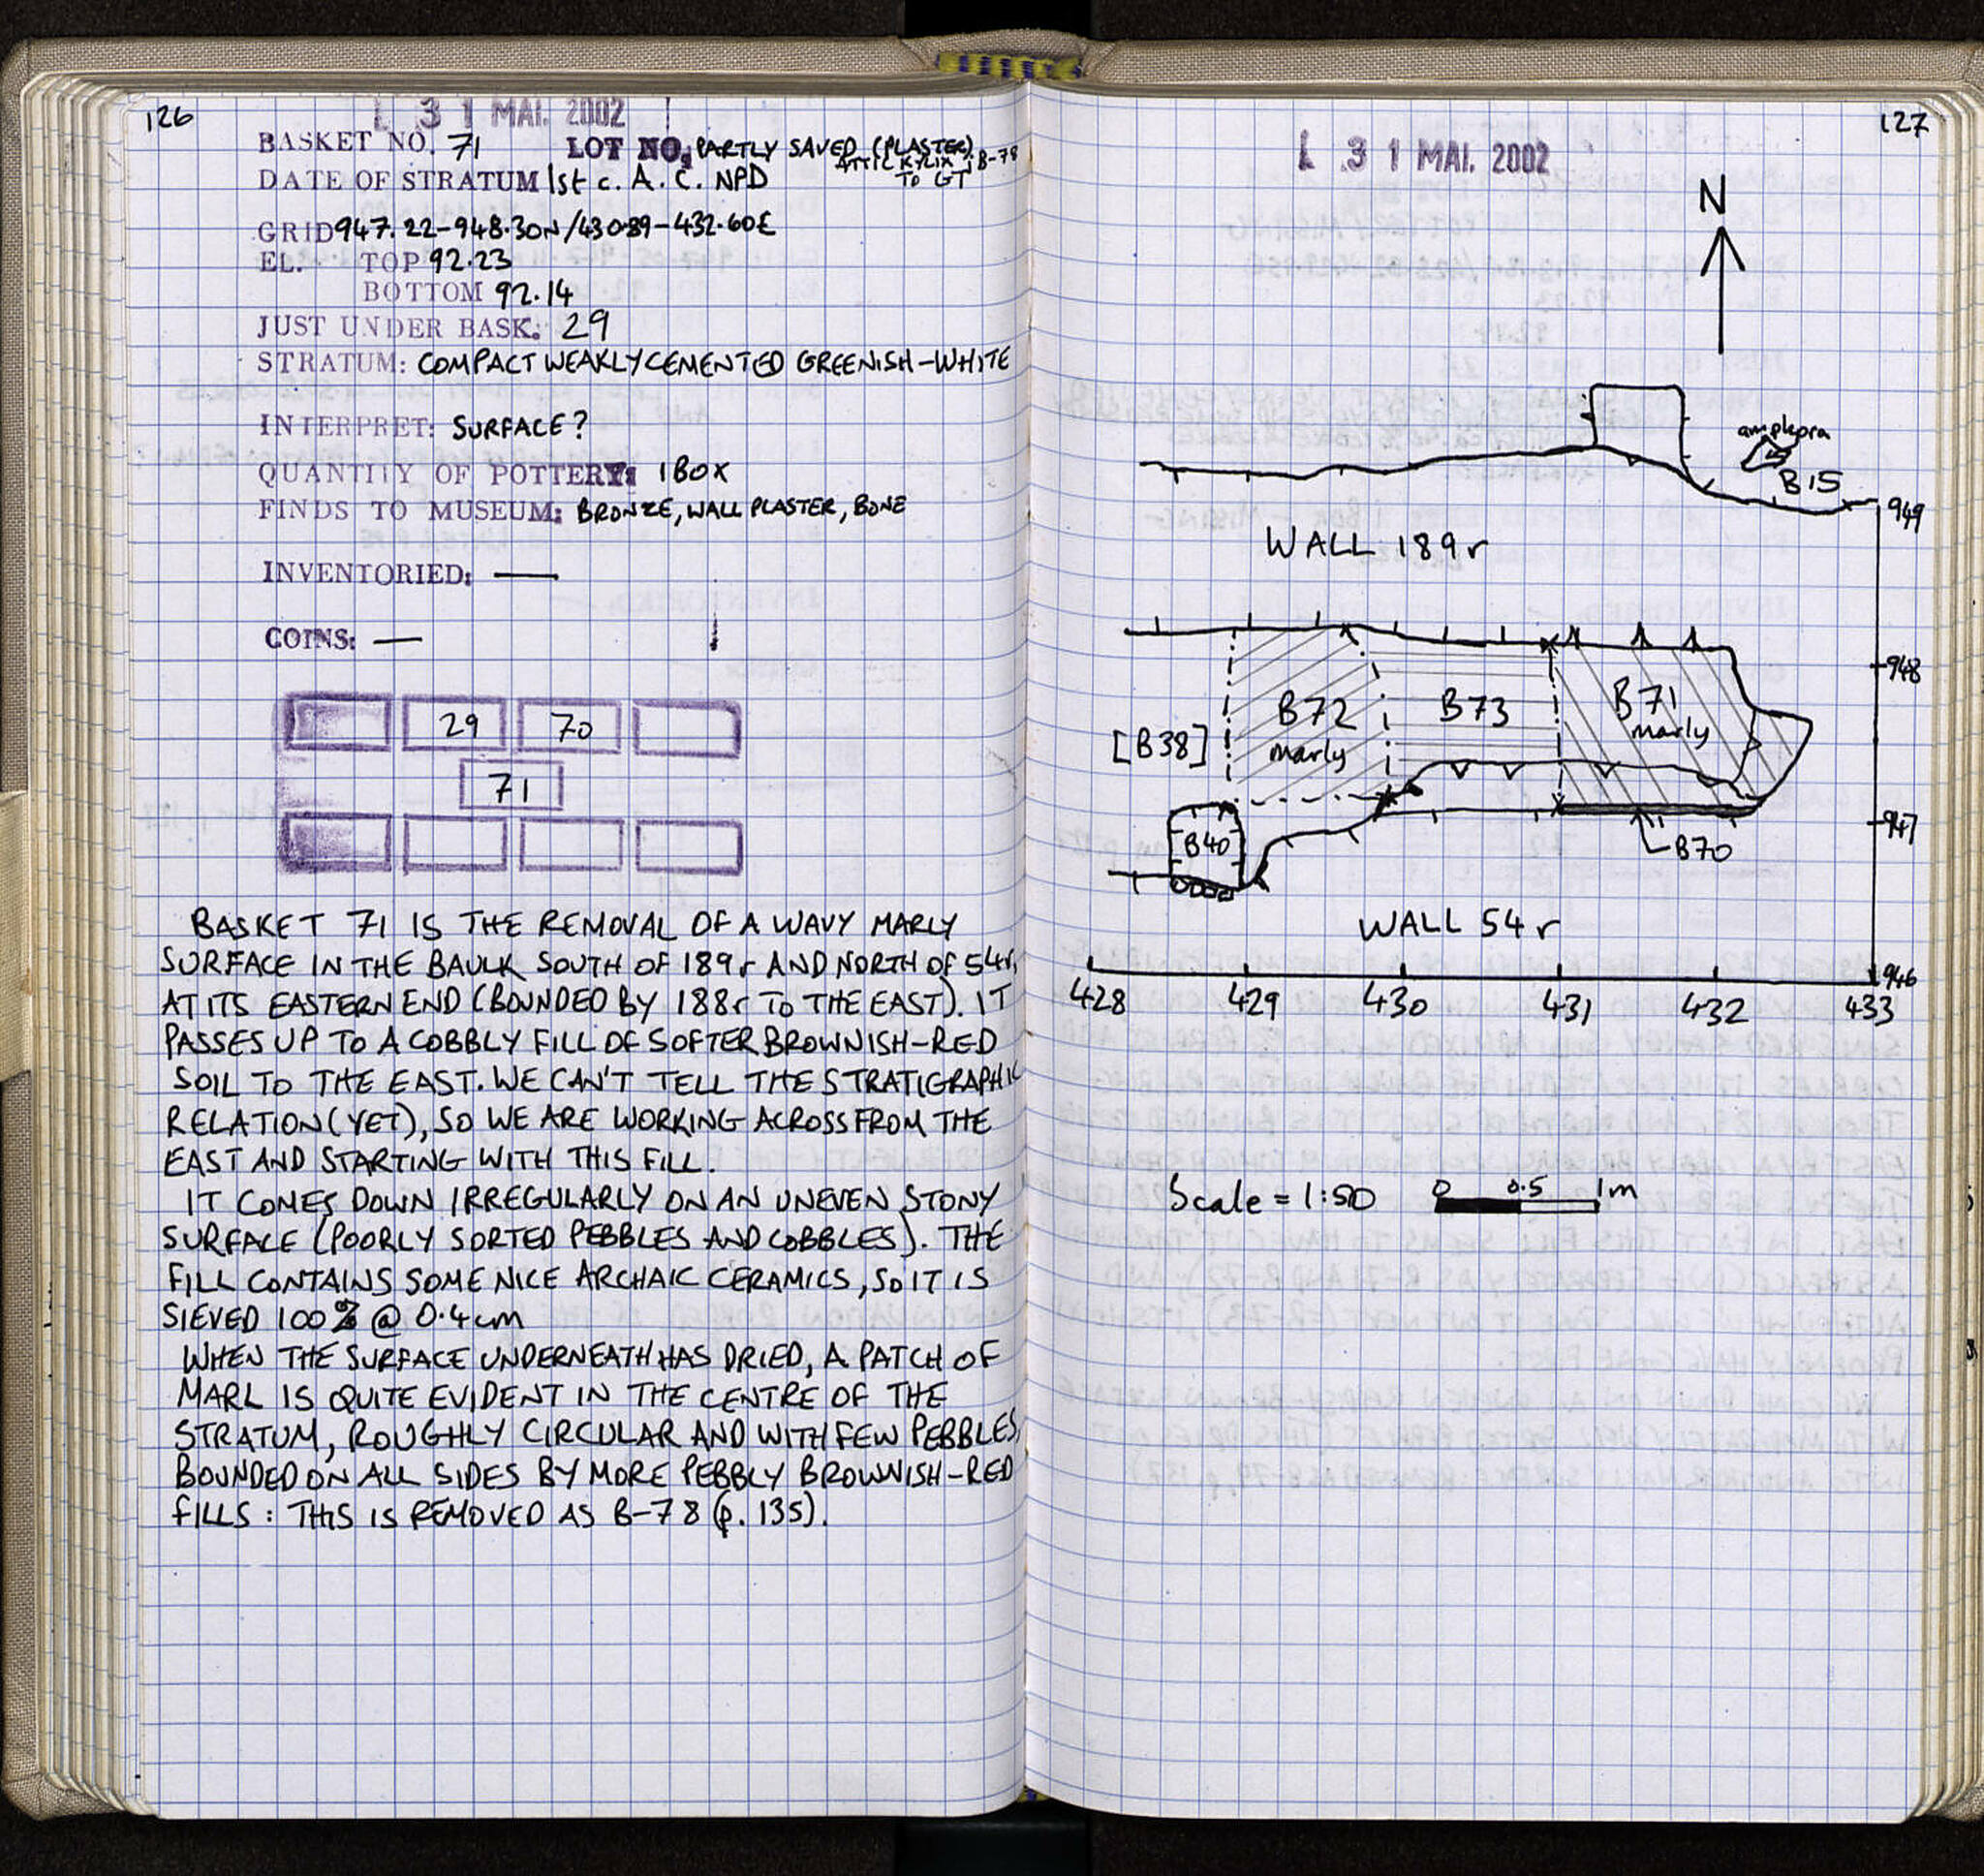 126
L 3 1 MAI. 2002
BASKET NO. 71 LOT NO. PARTLY SAVED (PLASTER)
ATTIC KYLIX ; B-78
TO GT
DATE OF STRATUM 1st c. A.C. NPD
GRID 947.22-948.30N/430.89-432.60E
EL. TOP 92.23
BOTTOM 92.14
JUST UNDER BASK: 29
STRATUM: COMPACT WEAKLY CEMENTED GREENISH-WHITE
INTERPRET: SURFACE?
QUANTITY OF POTTERY: 1 BOX
FINDS TO MUSEUM: BRONZE, WALL PLASTER, BONE
INVENTORIED: —
COINS: —
29 70
71
BASKET 71 IS THE REMOVAL OF A WAVY MARLY
SURFACE IN THE BAULK SOUTH OF 189r AND NORTH OF 54r,
AT ITS EASTERN END (BOUNDED BY 188r TO THE EAST). IT
PASSES UP TO A COBBLY FILL OF SOFTER BROWNISH-RED
SOIL TO THE EAST. WE CAN'T TELL THE STRATIGRAPHIC
RELATION (YET), SO WE ARE WORKING ACROSS FROM THE
EAST AND STARTING WITH THIS FILL.
IT COMES DOWN IRREGULARLY ON AN UNEVEN STONY
SURFACE (POORLY SORTED PEBBLES AND COBBLES). THE
FILL CONTAINS SOME NICE ARCHAIC CERAMICS, SO IT IS
SIEVED 100% @ 0.4cm
WHEN THE SURFACE UNDERNEATH HAS DRIED, A PATCH OF
MARL IS QUITE EVIDENT IN THE CENTRE OF THE
STRATUM, ROUGHLY CIRCULAR AND WITH FEW PEBBLES,
BOUNDED ON ALL SIDES BY MORE PEBBLY BROWNISH-RED
FILLS: THIS IS REMOVED AS B-78 (p. 135).
127
L 3 1 MAI. 2002
N
amphora
B15
949
WALL 189r
948
B72
marly
B73
B71
marly
[B38]
947
B40
B70
WALL 54r
946
428 429 430 431 432 433
Scale = 1:50 0 0.5 1m